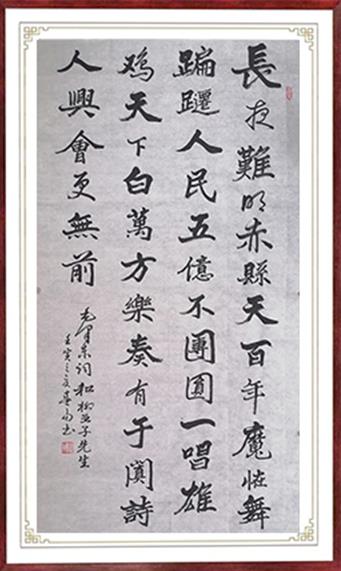 長夜難明赤縣天百年魔恠舞
蹁躚人民五億不團圓一唱雄
鸡天下白萬方樂奏有于闐詩
人興會更無前
毛泽东词和柳亚子先生
壬寅之夏书